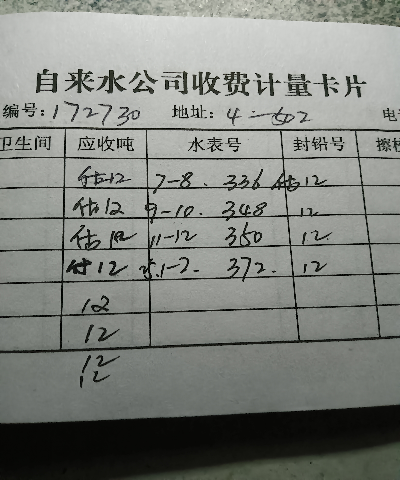 自来水公司收费计量卡片
编号: 172730 地址: 4-502 电
卫生间 应收吨 水表号 封铅号 擦
估12 7-8. 336 估12
估12 9-10. 348 12
估12 11-12 360 12.
估12 1-2. 372. 12
12
12
12
12